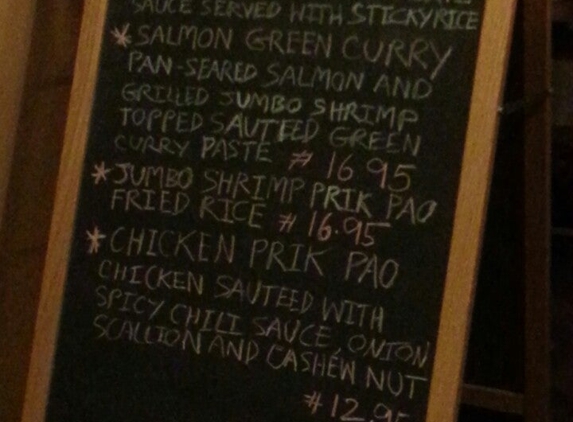 SAUCE SERVED WITH STICKY RICE
*SALMON GREEN CURRY
PAN-SEARED SALMON AND
GRILLED JUMBO SHRIMP
TOPPED SAUTEED GREEN
CURRY PASTE # 16 95
*JUMBO SHRIMP PRIK PAO
FRIED RICE # 16.95
*CHICKEN PRIK PAO
CHICKEN SAUTEED WITH
SPICY CHILI SAUCE, ONION
SCALLION AND CASHEW NUT
#12.95